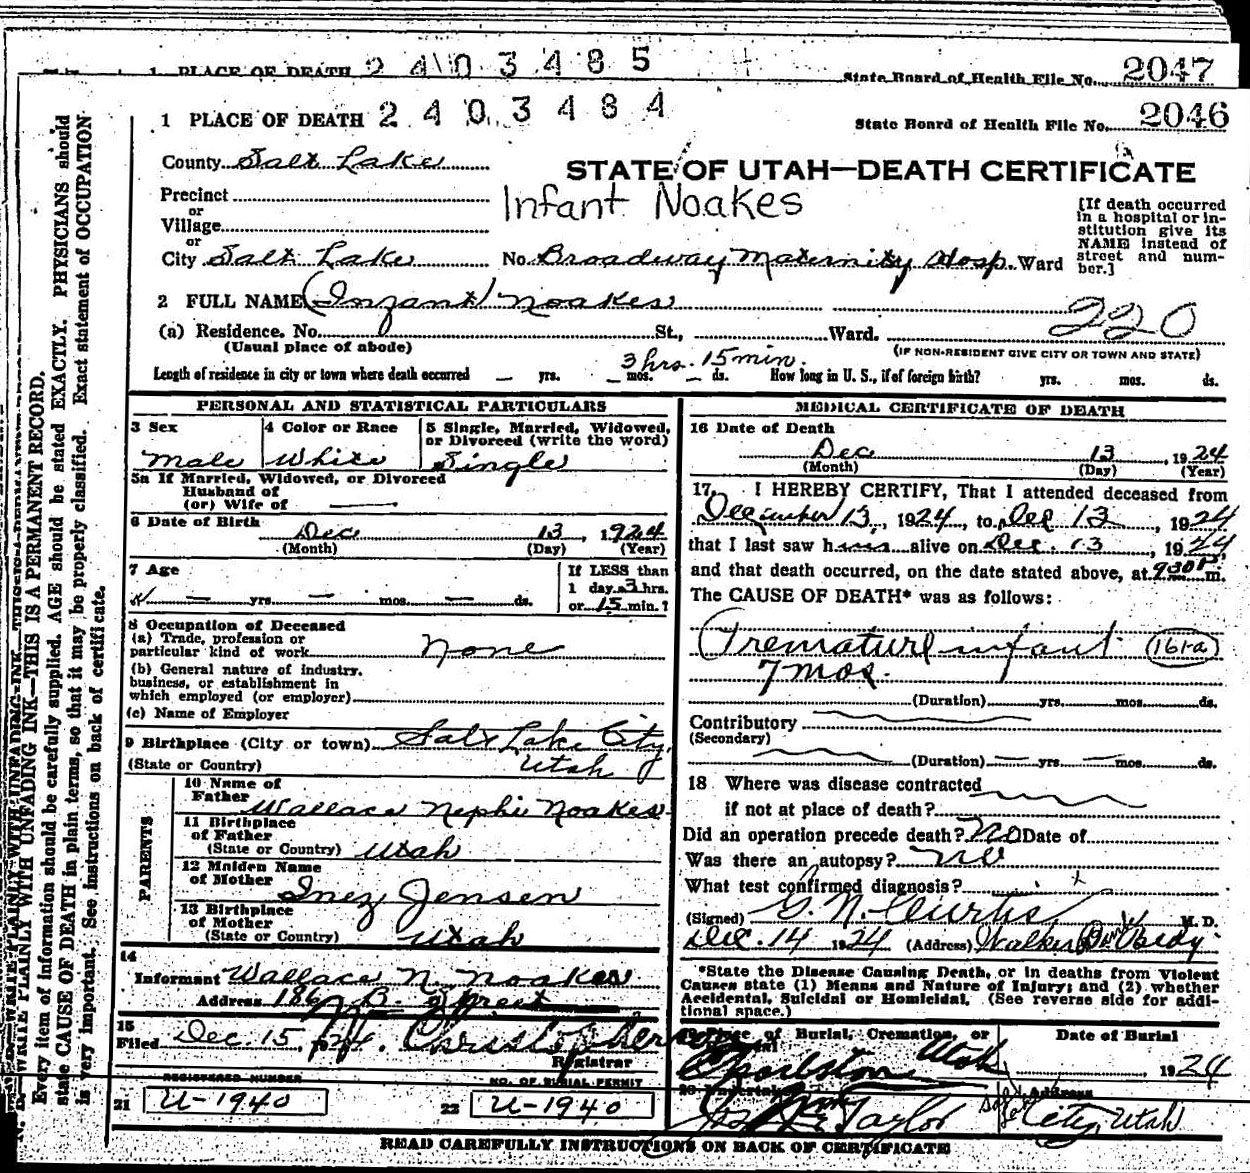 1 PLACE OF DEATH 2 4 0 3 4 8 5
State Board of Health File No. 2047
1 PLACE OF DEATH 2 4 0 3 4 8 4
State Board of Health File No. 2046
County Salt Lake
STATE OF UTAH—DEATH CERTIFICATE
Precinct
or
Village
or
Infant Noakes
[If death occurred
in a hospital or in-
stitution give its
NAME instead of
street and num-
ber.]
City Salt Lake No. Broadway Maternity Hosp. Ward
2 FULL NAME (Infant) Noakes
220
(a) Residence. No. St., Ward.
(Usual place of abode)
(IF NON-RESIDENT GIVE CITY OR TOWN AND STATE)
3 hrs. 15 min.
Length of residence in city or town where death occurred — yrs. — mos. — ds. How long in U. S., if of foreign birth? yrs. mos. ds.
PERSONAL AND STATISTICAL PARTICULARS
3 Sex
Male
4 Color or Race
White
5 Single, Married, Widowed,
or Divorced (write the word)
Single
5a If Married, Widowed, or Divorced
Husband of
(or) Wife of —
6 Date of Birth
Dec 13, 1924
(Month) (Day) (Year)
7 Age
— yrs. — mos. — ds.
If LESS than
1 day 3 hrs.
or 15 min.?
8 Occupation of Deceased
(a) Trade, profession or
particular kind of work None
(b) General nature of industry,
business, or establishment in
which employed (or employer)
(c) Name of Employer
9 Birthplace (City or town) Salt Lake City,
(State or Country) Utah
PARENTS
10 Name of
Father Wallace Nephi Noakes
11 Birthplace
of Father
(State or Country) Utah
12 Maiden Name
of Mother Inez Jensen
13 Birthplace
of Mother
(State or Country) Utah
14
Informant Wallace N. Noakes
Address
15
Filed Dec. 15,
Registrar
REGISTERED NUMBER
21 U-1940
NO. OF BURIAL PERMIT
22 U-1940
MEDICAL CERTIFICATE OF DEATH
16 Date of Death
Dec 13, 1924
(Month) (Day) (Year)
17. I HEREBY CERTIFY, That I attended deceased from
December 13, 1924, to Dec 13, 1924
that I last saw him alive on Dec. 13, 1924
and that death occurred, on the date stated above, at 930 P. m.
The CAUSE OF DEATH* was as follows:
Premature infant 161-a
7 mos.
(Duration) yrs. mos. ds.
Contributory
(Secondary)
(Duration) — yrs. — mos. ds.
18 Where was disease contracted
if not at place of death?
Did an operation precede death? No Date of
Was there an autopsy? no
What test confirmed diagnosis?
(Signed) G. N. Curtis, M. D.
Dec. 14 1924 (Address) Walker Bank Bldg.
*State the Disease Causing Death, or in deaths from Violent
Causes state (1) Means and Nature of Injury; and (2) whether
Accidental, Suicidal or Homicidal. (See reverse side for addi-
tional space.)
19 Place of Burial, Cremation, or
Utah
Date of Burial
1924
Address
Taylor
City, Utah
READ CAREFULLY INSTRUCTIONS ON BACK OF CERTIFICATE
N. B.—WRITE PLAINLY WITH UNFADING INK—THIS IS A PERMANENT RECORD.
Every item of information should be carefully supplied. AGE should be stated EXACTLY. PHYSICIANS should
state CAUSE OF DEATH in plain terms, so that it may be properly classified. Exact statement of OCCUPATION
is very important. See instructions on back of certificate.